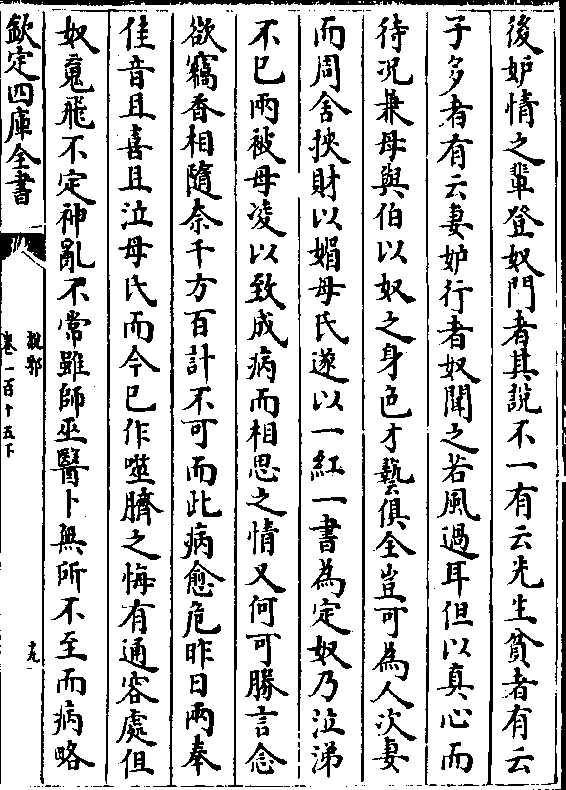 後妒情之輩登奴門者其說不一有云先生貧者有云
子多者有云妻妒行者奴聞之若風過耳但以真心而
待况兼母與伯以奴之身色才藝俱全豈可為人次妻
而周舍挾財以媚母氏遂以一紅一書為定奴乃泣涕
不已兩被母凌以致成病而相思之情又何可勝言念
欲竊香相隨奈千方百計不可而此病愈危昨日兩奉
佳音且喜且泣母氏而今已作噬臍之悔有通容處但
奴䰟飛不定神亂不常雖師巫醫卜無所不至而病略
欽定四庫全書
說郛
卷一百十五下
十九